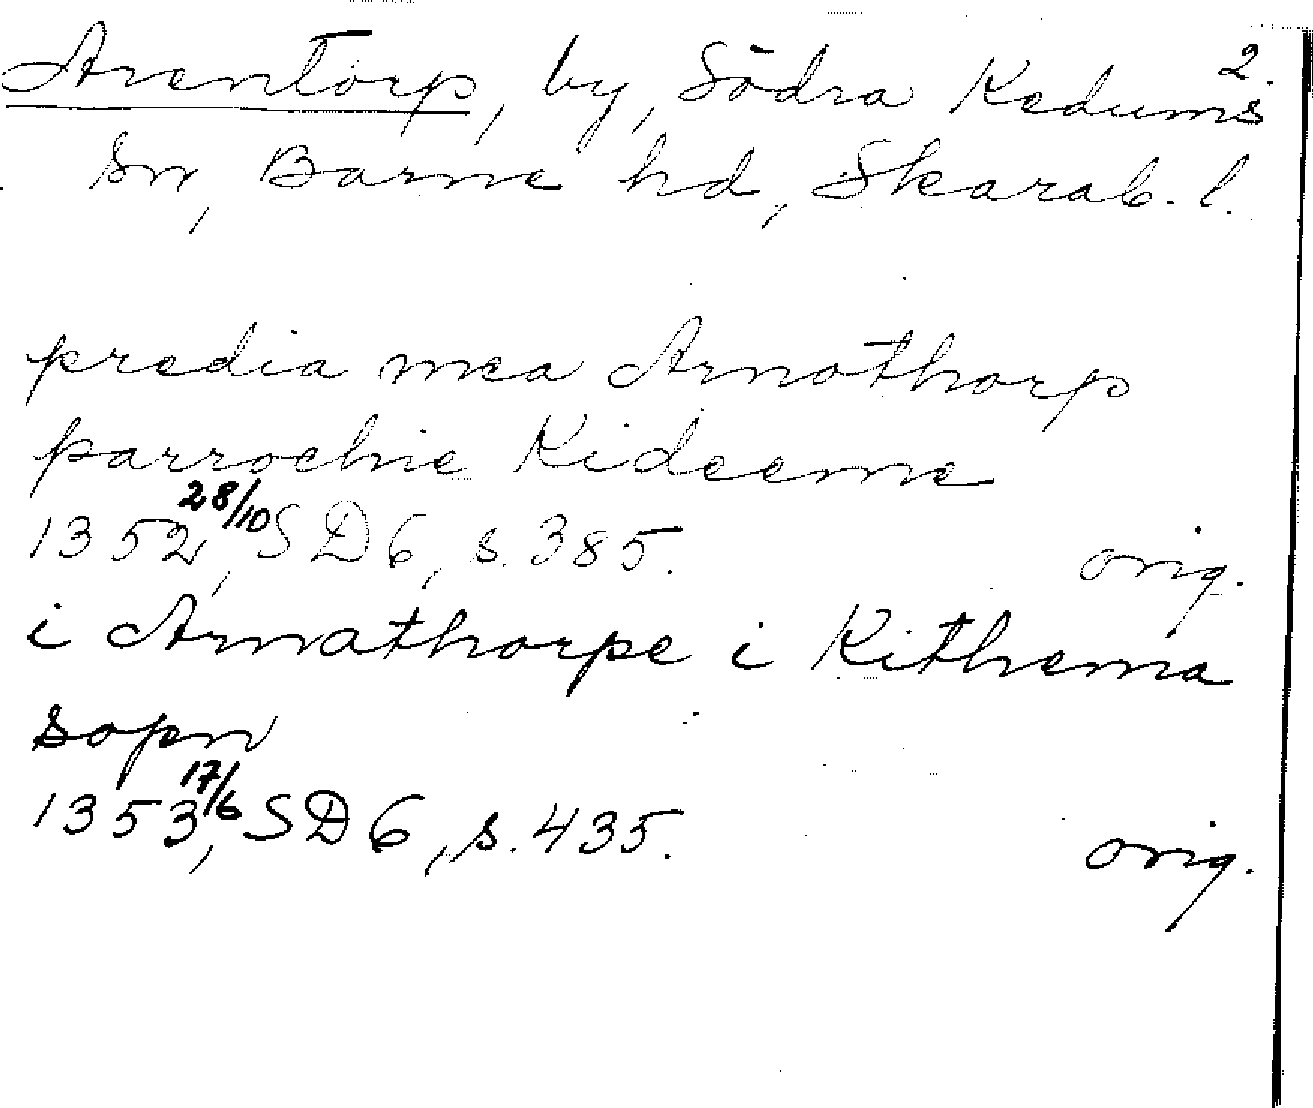 2.
Arentorp, by, Södra Kedums
sn, Barne hd, Skarab. l.
predia mea Arnothorp
parrochie Kideeme
1352 28/10, SD 6, s. 385. orig.
i Arnathorpe i Kithema
sopn
1353 17/6, SD 6, s. 435. orig.